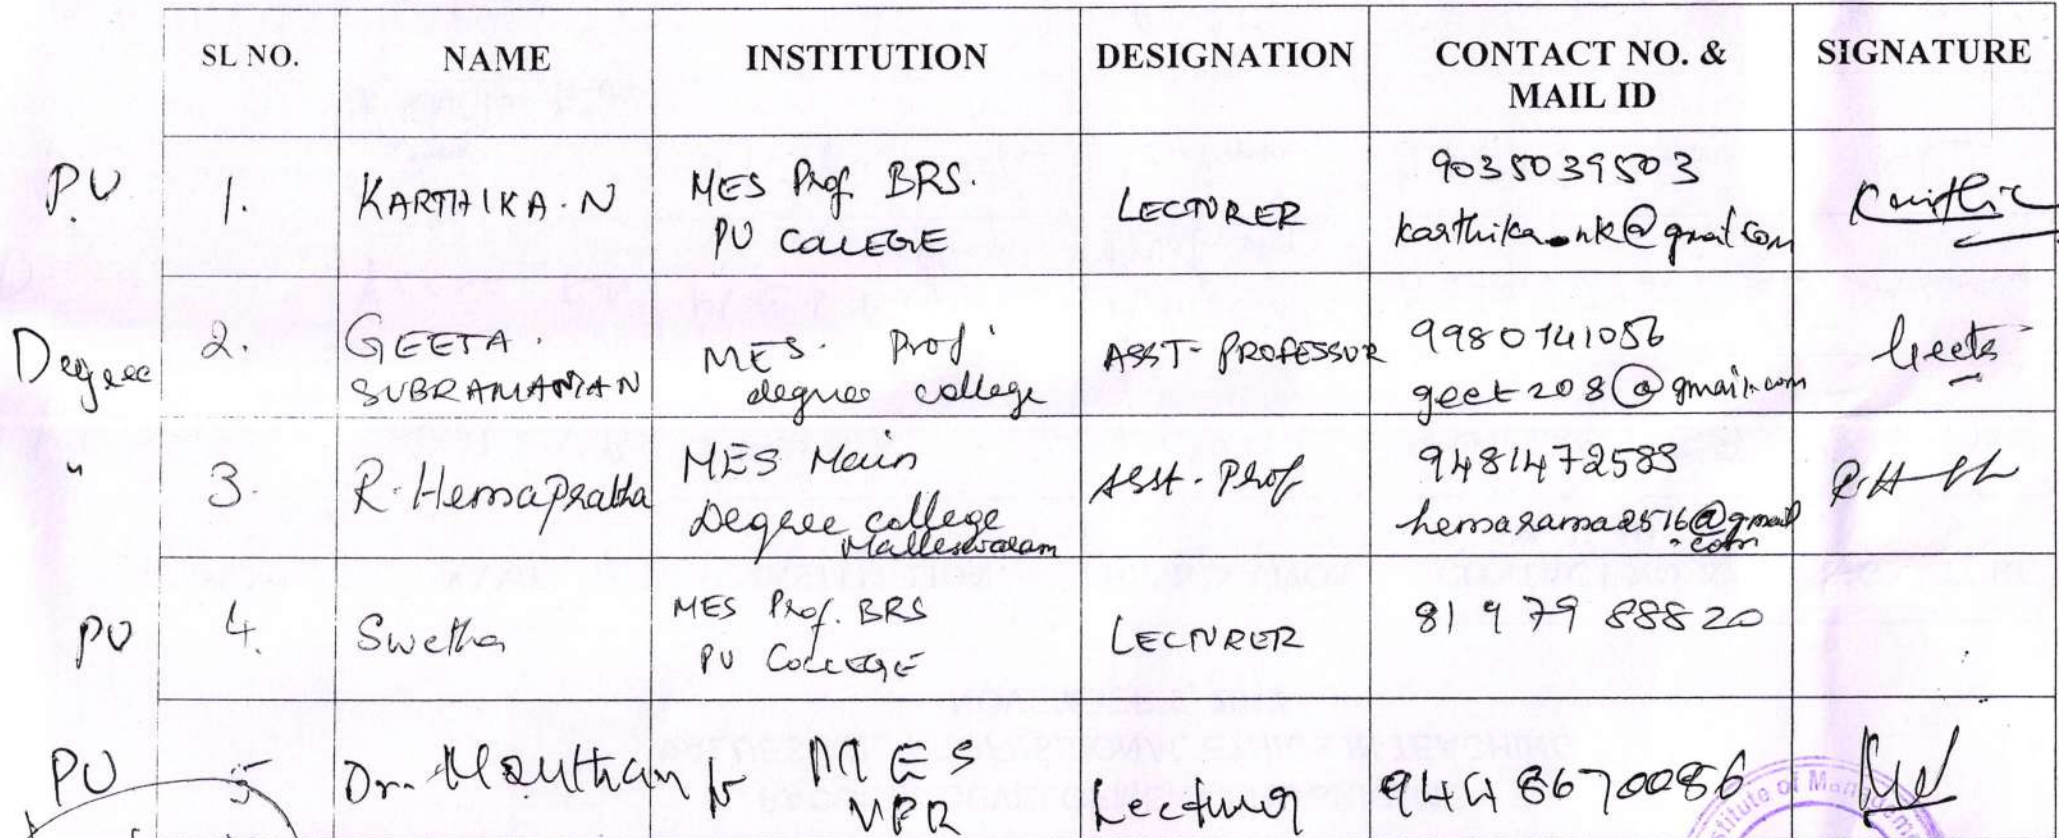 SL NO. NAME INSTITUTION DESIGNATION CONTACT NO. & MAIL ID SIGNATURE
PU 1. KARTHIKA. N MES Prof. BRS. PU COLLEGE LECTURER 9035039503 karthika.nk@gmail.com
Degree 2. GEETA. SUBRAMANIAN MES. Prof. degree college ASST- PROFESSOR 9980141056 geet208@gmail.com Geeta
" 3. R. Hemaprabha MES Main Degree college Malleswaram Asst. Prof 9481472583 hemarama2516@gmail.com
PU 4. Swetha MES Prof. BRS PU COLLEGE LECTURER 81979 88820
PU 5 Dr. MES Lecturer 9448670086
stitute of Managem